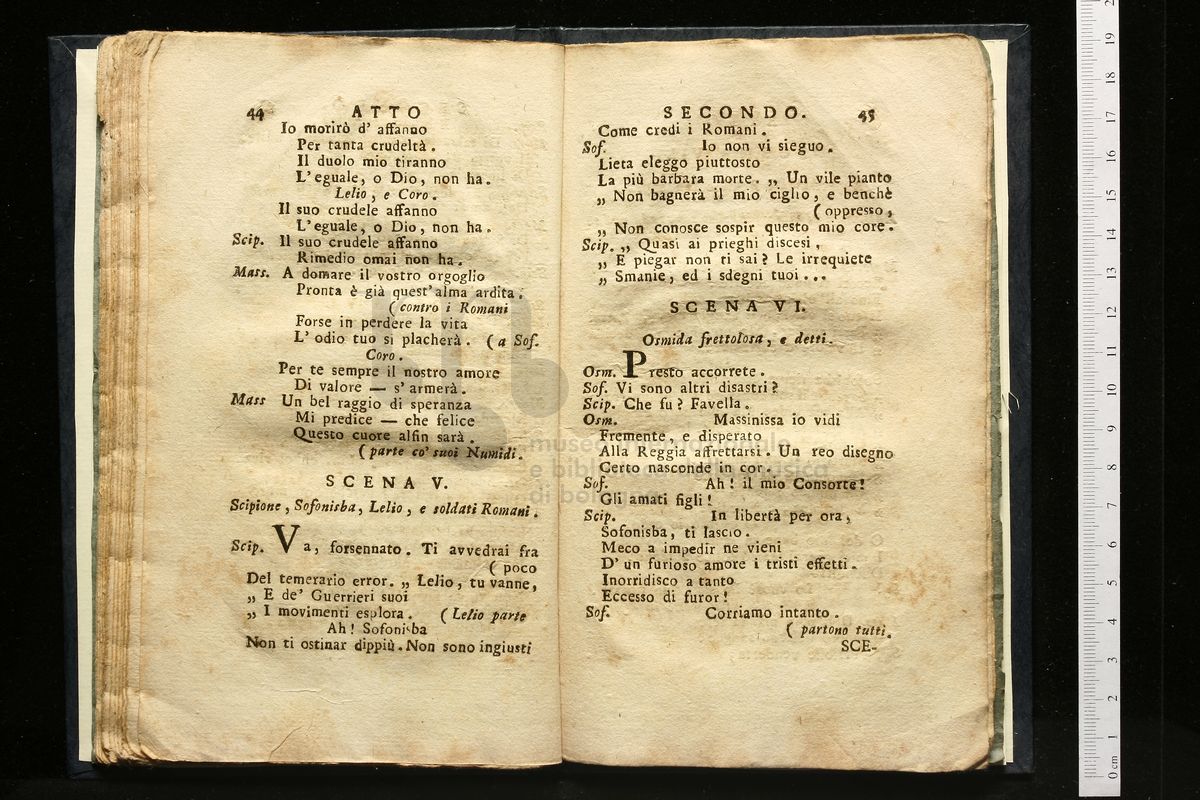 44 ATTO
Io morirò d' affanno
Per tanta crudeltà.
Il duolo mio tiranno
L'eguale, o Dio, non ha.
Lelio, e Coro.
Il suo crudele affanno
L'eguale, o Dio, non ha.
Scip. Il suo crudele affanno
Rimedio omai non ha.
Mass. A domare il vostro orgoglio
Pronta è già quest'alma ardita.
(contro i Romani
Forse in perdere la vita
L'odio tuo si placherà. (a Sof.
Coro.
Per te sempre il nostro amore
Di valore — s'armerà.
Mass Un bel raggio di speranza
Mi predice — che felice
Questo cuore alfin sarà.
(parte co' suoi Numidi.
SCENA V.
Scipione, Sofonisba, Lelio, e soldati Romani.
Scip. Va, forsennato. Ti avvedrai fra
(poco
Del temerario error. „ Lelio, tu vanne,
„ E de' Guerrieri suoi
„ I movimenti esplora. (Lelio parte
Ah! Sofonisba
Non ti ostinar dippiù. Non sono ingiusti
SECONDO. 45
Come credi i Romani.
Sof. Io non vi sieguo.
Lieta eleggo piuttosto
La più barbara morte. „ Un vile pianto
„ Non bagnerà il mio ciglio, e benchè
(oppresso,
„ Non conosce sospir questo mio core.
Scip. „ Quasi ai prieghi discesi,
„ E piegar non ti sai? Le irrequiete
„ Smanie, ed i sdegni tuoi...
SCENA VI.
Osmida frettolosa, e detti.
Osm. Presto accorrete.
Sof. Vi sono altri disastri?
Scip. Che fu? Favella.
Osm. Massinissa io vidi
Fremente, e disperato
Alla Reggia affrettarsi. Un reo disegno
Certo nasconde in cor.
Sof. Ah! il mio Consorte!
Gli amati figli!
Scip. In libertà per ora,
Sofonisba, ti lascio.
Meco a impedir ne vieni
D'un furioso amore i tristi effetti.
Inorridisco a tanto
Eccesso di furor!
Sof. Corriamo intanto.
(partono tutti.
SCE-
museo internazionale
e biblioteca della musica
di bologna
0 cm 1 2 3 4 5 6 7 8 9 10 11 12 13 14 15 16 17 18 19